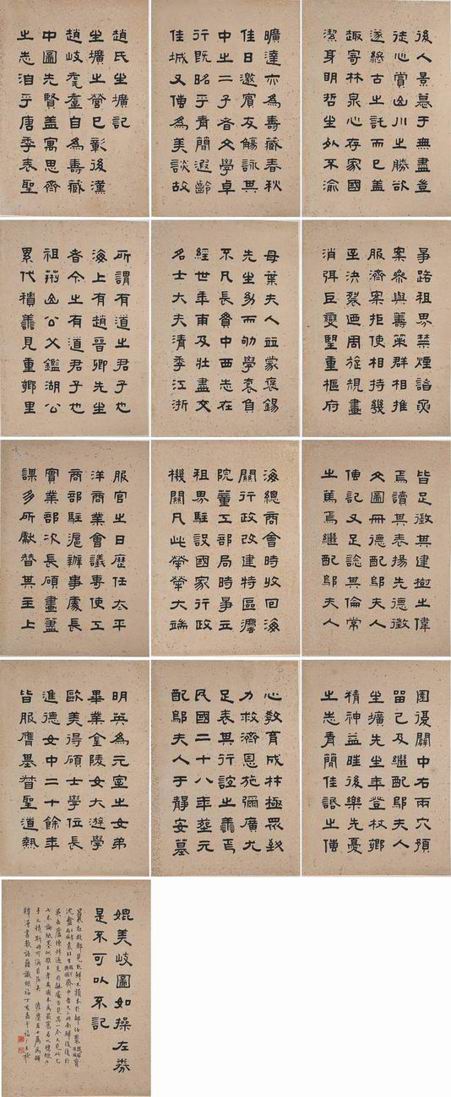 趙氏生壙記
生壙之營已彰後漢
趙岐耄耋自為壽藏
中圖先賢蓋寓思齊
之志洎乎唐季表聖
曠達亦為壽藏春秋
佳日邀賓友觴詠其
中之二子者文學卓
行既昭乎青簡遐齡
佳城又傳為美談故
後人景慕于無盡登
徒心賞山川之勝欲
遂終古之託而已蓋
趣寄林泉心存家國
潔身明哲生死不渝
所謂有道之君子也
海上有趙晉卿先生
者今之有道君子也
祖山公父鑑湖公
累代積善見重鄉里
母葉夫人竝蒙褒錫
先生而劬學衷負
不凡長貫中西志在
經世年甫及壯盡交
名士大夫清季江浙
爭路租界禁煙諸
案參與籌策群相推
服濟案拒使相持幾
至決裂迺周旋視畫
消弭巨變重樞府
服官之日歷任太平
洋商業會議專使工
商部駐滬辦事處長
實業部次長碩畫藎
謀多所獻替其主上
海總商會時收回海
關行政改建特區灋
院董工部局時爭立
租界駐設國家行政
機關凡此犖犖大端
皆足徵其建樹之偉
焉讀其表揚先德徵
文圖冊德配鄔夫人
傳記又足諗其倫常
之篤焉繼配鄔夫人
明英為元室之女弟
畢業金陵女大遊學
歐美得碩士學位長
進德女中二十餘年
皆服膺基督聖道熱
心教育成林極致
力救濟恩施彌廣尤
足表其行誼之義焉
民國二十八年葬元
配鄔夫人于靜安墓
園復關中右兩穴預
留己及繼配鄔夫人
生壙先生年登杖鄉
精神益旺後樂先憂
之志青簡佳話之傳
媲美岐圖如操左券
是不可以不記